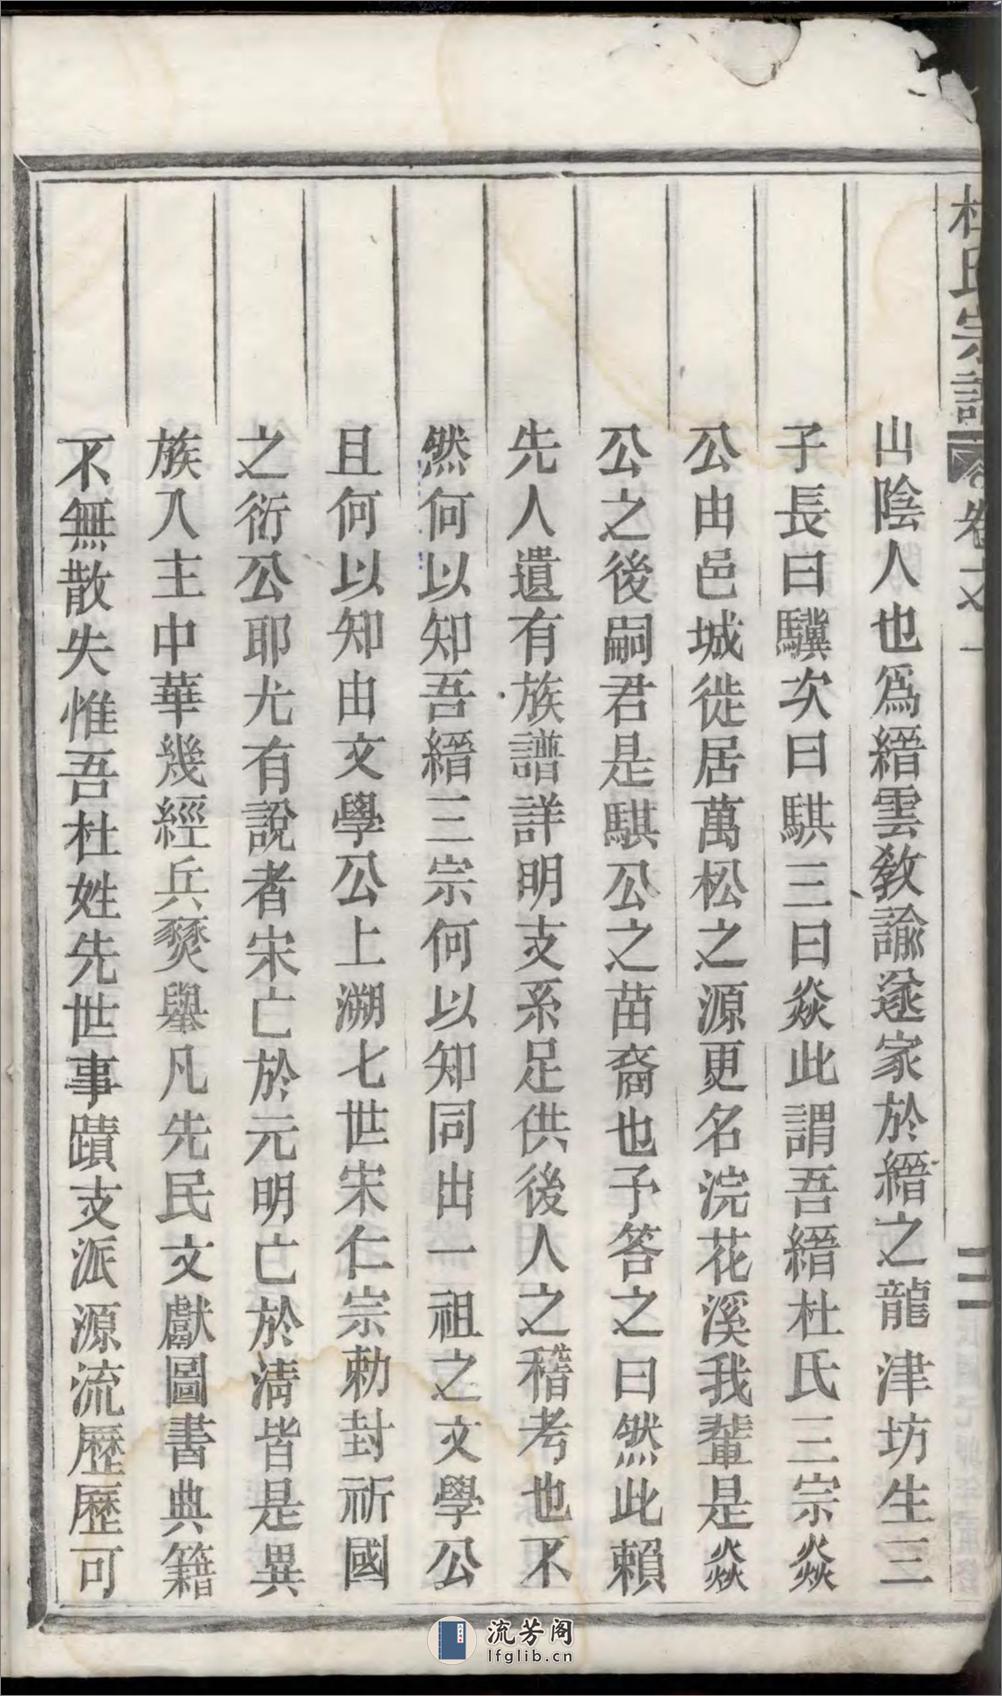 杜氏宗譜 卷之一 二
山陰人也爲縉雲教諭遂家於縉之龍津坊生三
子長曰驥次曰騏三曰焱此謂吾縉杜氏三宗焱
公由邑城徙居萬松之源更名浣花溪我輩是焱
公之後嗣君是騏公之苗裔也予答之曰然此賴
先人遺有族譜詳明支系足供後人之稽考也不
然何以知吾縉三宗何以知同出一祖之文學公
且何以知由文學公上溯七世宋仁宗勅封祈國
之衍公耶尤有說者宋亡於元明亡於淸皆是異
族入主中華幾經兵燹舉凡先民文獻圖書典籍
不無散失惟吾杜姓先世事蹟支派源流歷歷可
流芳阁
lfglib.cn